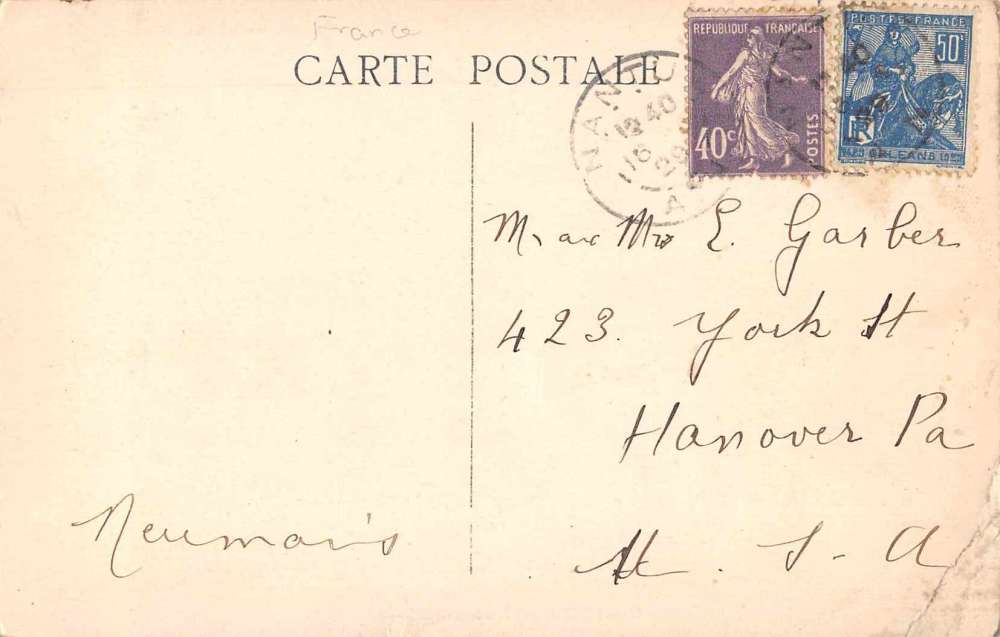 France
CARTE POSTALE
REPUBLIQUE FRANÇAISE
40c
POSTES
POSTES FRANCE
50c
RF
ORLEANS
12 40
16
29
Mr and Mrs E. Garber
423. York St
Hanover Pa
U. S. A
Neuman's